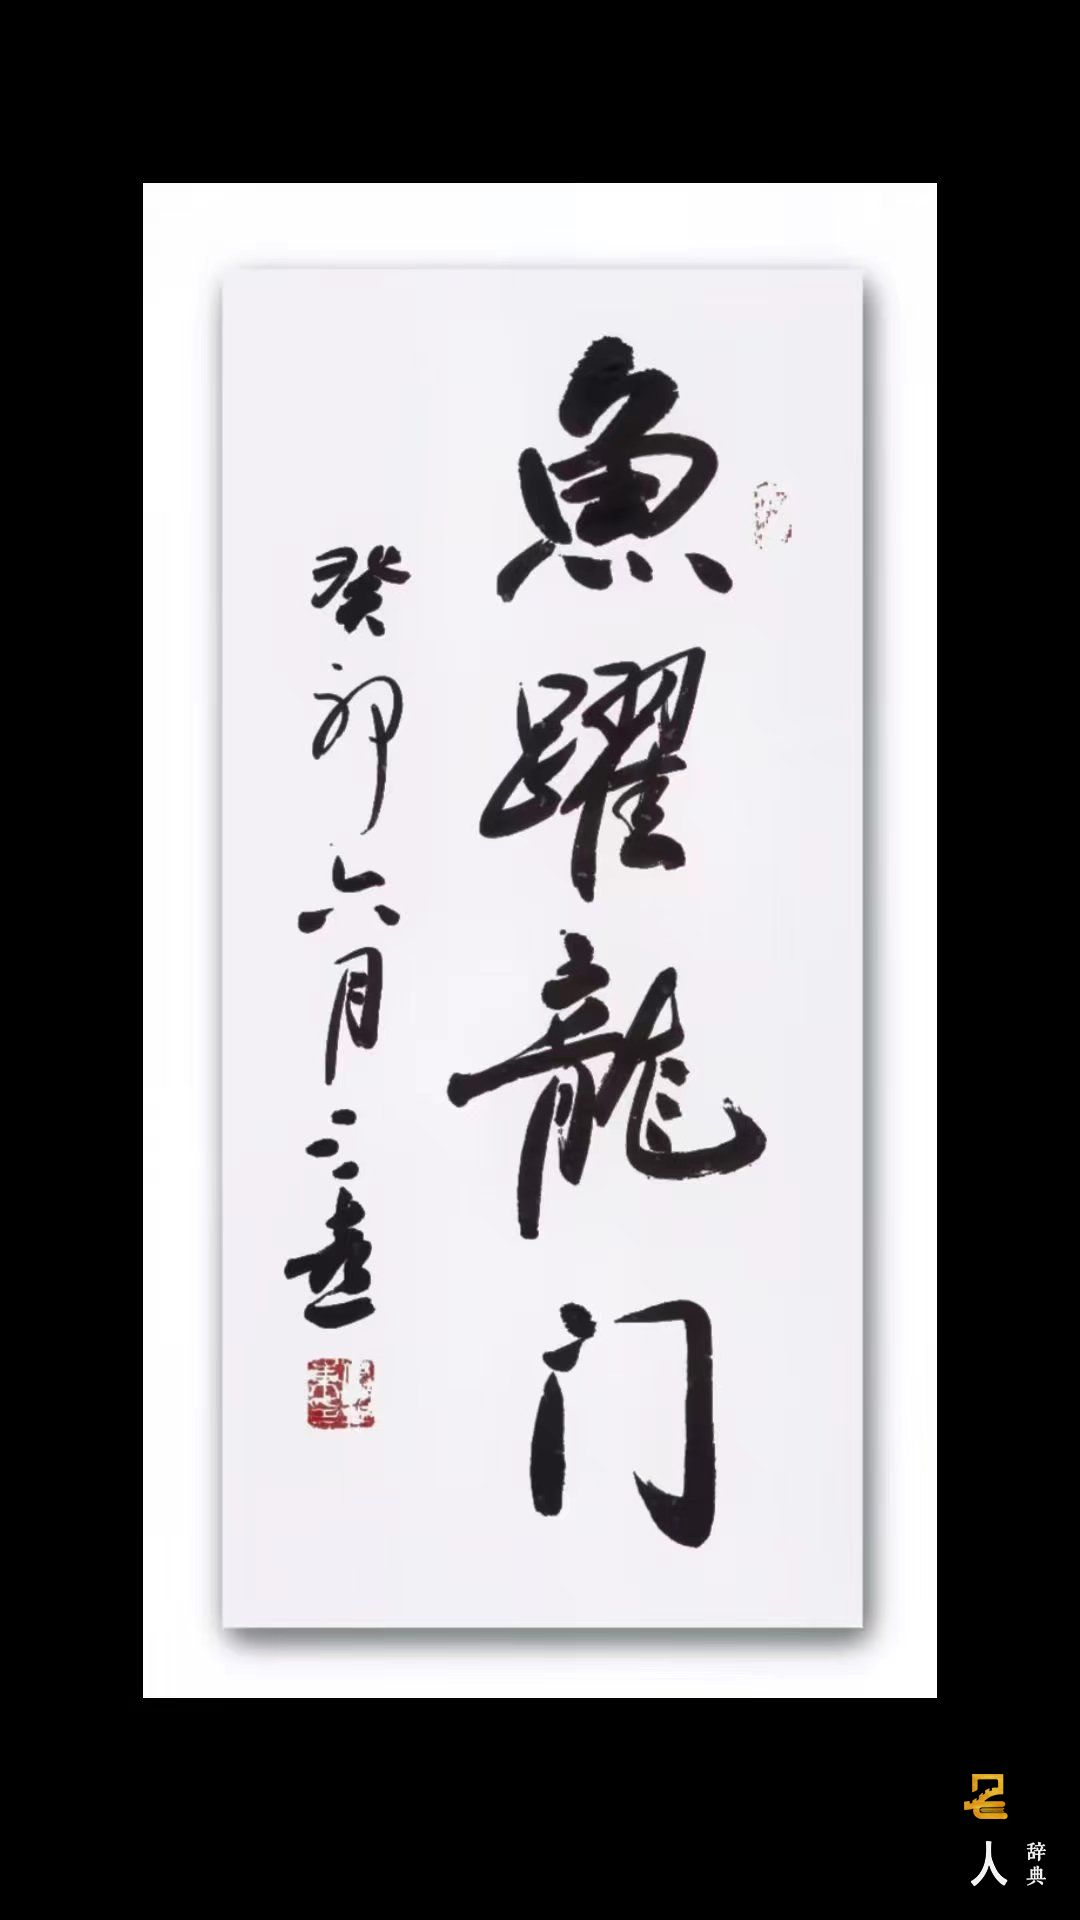 魚躍龍门
癸卯六月
人
辞典